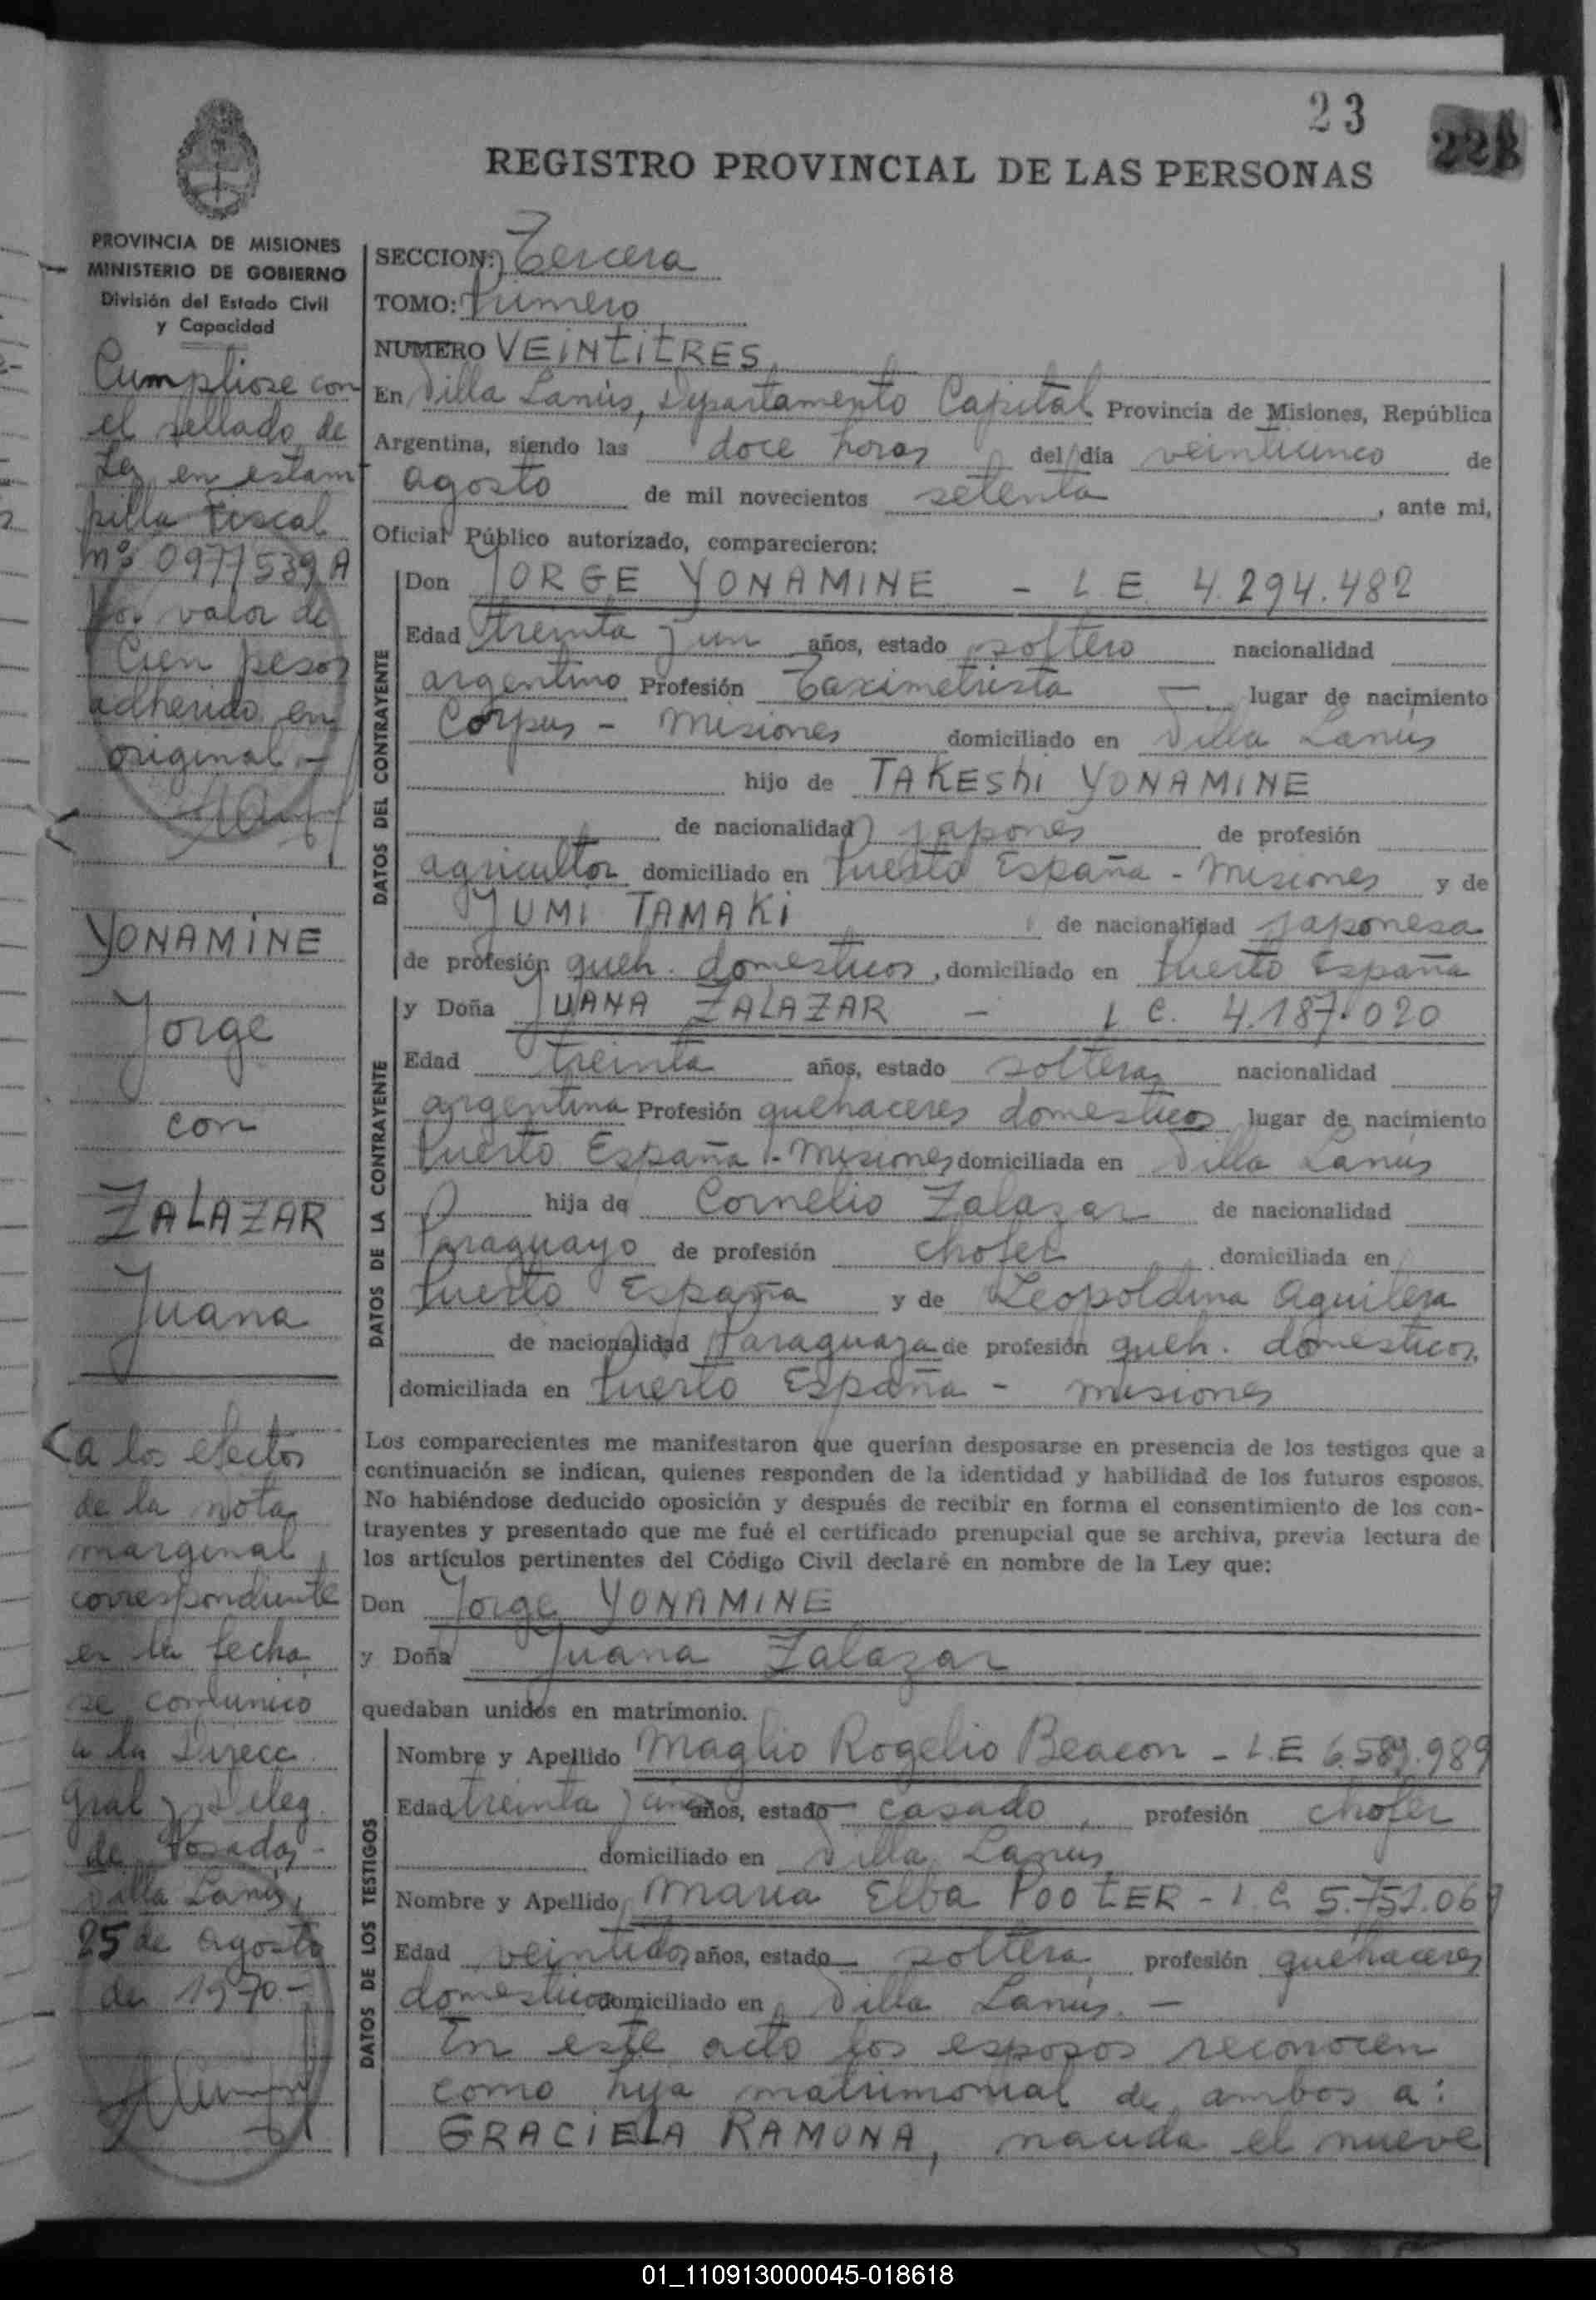 23
228
REGISTRO PROVINCIAL DE LAS PERSONAS
PROVINCIA DE MISIONES
MINISTERIO DE GOBIERNO
División del Estado Civil
y Capacidad
Cumpliose con
el sellado de
Ley en estam
pilla Fiscal
nº 0977539 A
por valor de
Cien pesos
adherido en
original -
YONAMINE
Jorge
con
ZALAZAR
Juana
a los efectos
de la nota
marginal
correspondiente
en la fecha
se comunico
a la Direcc.
Gral y Deleg.
de Posadas -
Villa Lanús,
25 de agosto
de 1970 -
SECCION: Tercera
TOMO: Primero
NUMERO VEINTITRES
En Villa Lanús, Departamento Capital Provincia de Misiones, República
Argentina, siendo las doce horas del día veinticinco de
agosto de mil novecientos setenta, ante mi,
Oficial Público autorizado, comparecieron:
DATOS DEL CONTRAYENTE
Don JORGE YONAMINE - L.E. 4.294.482
Edad treinta y un años, estado soltero nacionalidad
argentino Profesión Taximetrista - lugar de nacimiento
Corpus - Misiones domiciliado en Villa Lanús
hijo de TAKESHI YONAMINE
de nacionalidad japonés de profesión
agricultor domiciliado en Puerto España - Misiones y de
YUMI TAMAKI de nacionalidad japonesa
de profesión queh. domesticos, domiciliado en Puerto España
DATOS DE LA CONTRAYENTE
y Doña JUANA ZALAZAR - L C. 4.187.020
Edad treinta años, estado soltera nacionalidad
argentina Profesión quehaceres domesticos lugar de nacimiento
Puerto España - Misiones domiciliada en Villa Lanús
hija de Cornelio Zalazar de nacionalidad
Paraguayo de profesión chofer domiciliada en
Puerto España y de Leopoldina Aguilera
de nacionalidad Paraguaya de profesión queh. domesticos,
domiciliada en Puerto España - Misiones
Los comparecientes me manifestaron que querían desposarse en presencia de los testigos que a
continuación se indican, quienes responden de la identidad y habilidad de los futuros esposos.
No habiéndose deducido oposición y después de recibir en forma el consentimiento de los con-
trayentes y presentado que me fué el certificado prenupcial que se archiva, previa lectura de
los artículos pertinentes del Código Civil declaré en nombre de la Ley que:
Don Jorge YONAMINE
y Doña Juana Zalazar
quedaban unidos en matrimonio.
DATOS DE LOS TESTIGOS
Nombre y Apellido Maglio Rogelio Beacon - L.E 6.589.989
Edad treinta y años, estado casado, profesión chofer
domiciliado en Villa Lanus
Nombre y Apellido Maria Elba POOTER - L.C. 5.751.069
Edad veintidos años, estado soltera profesión quehaceres
domesticos domiciliado en Villa Lanús. -
En este acto los esposos reconocen
como hija matrimonial de ambos a:
GRACIELA RAMONA, nacida el nueve
01_110913000045-018618